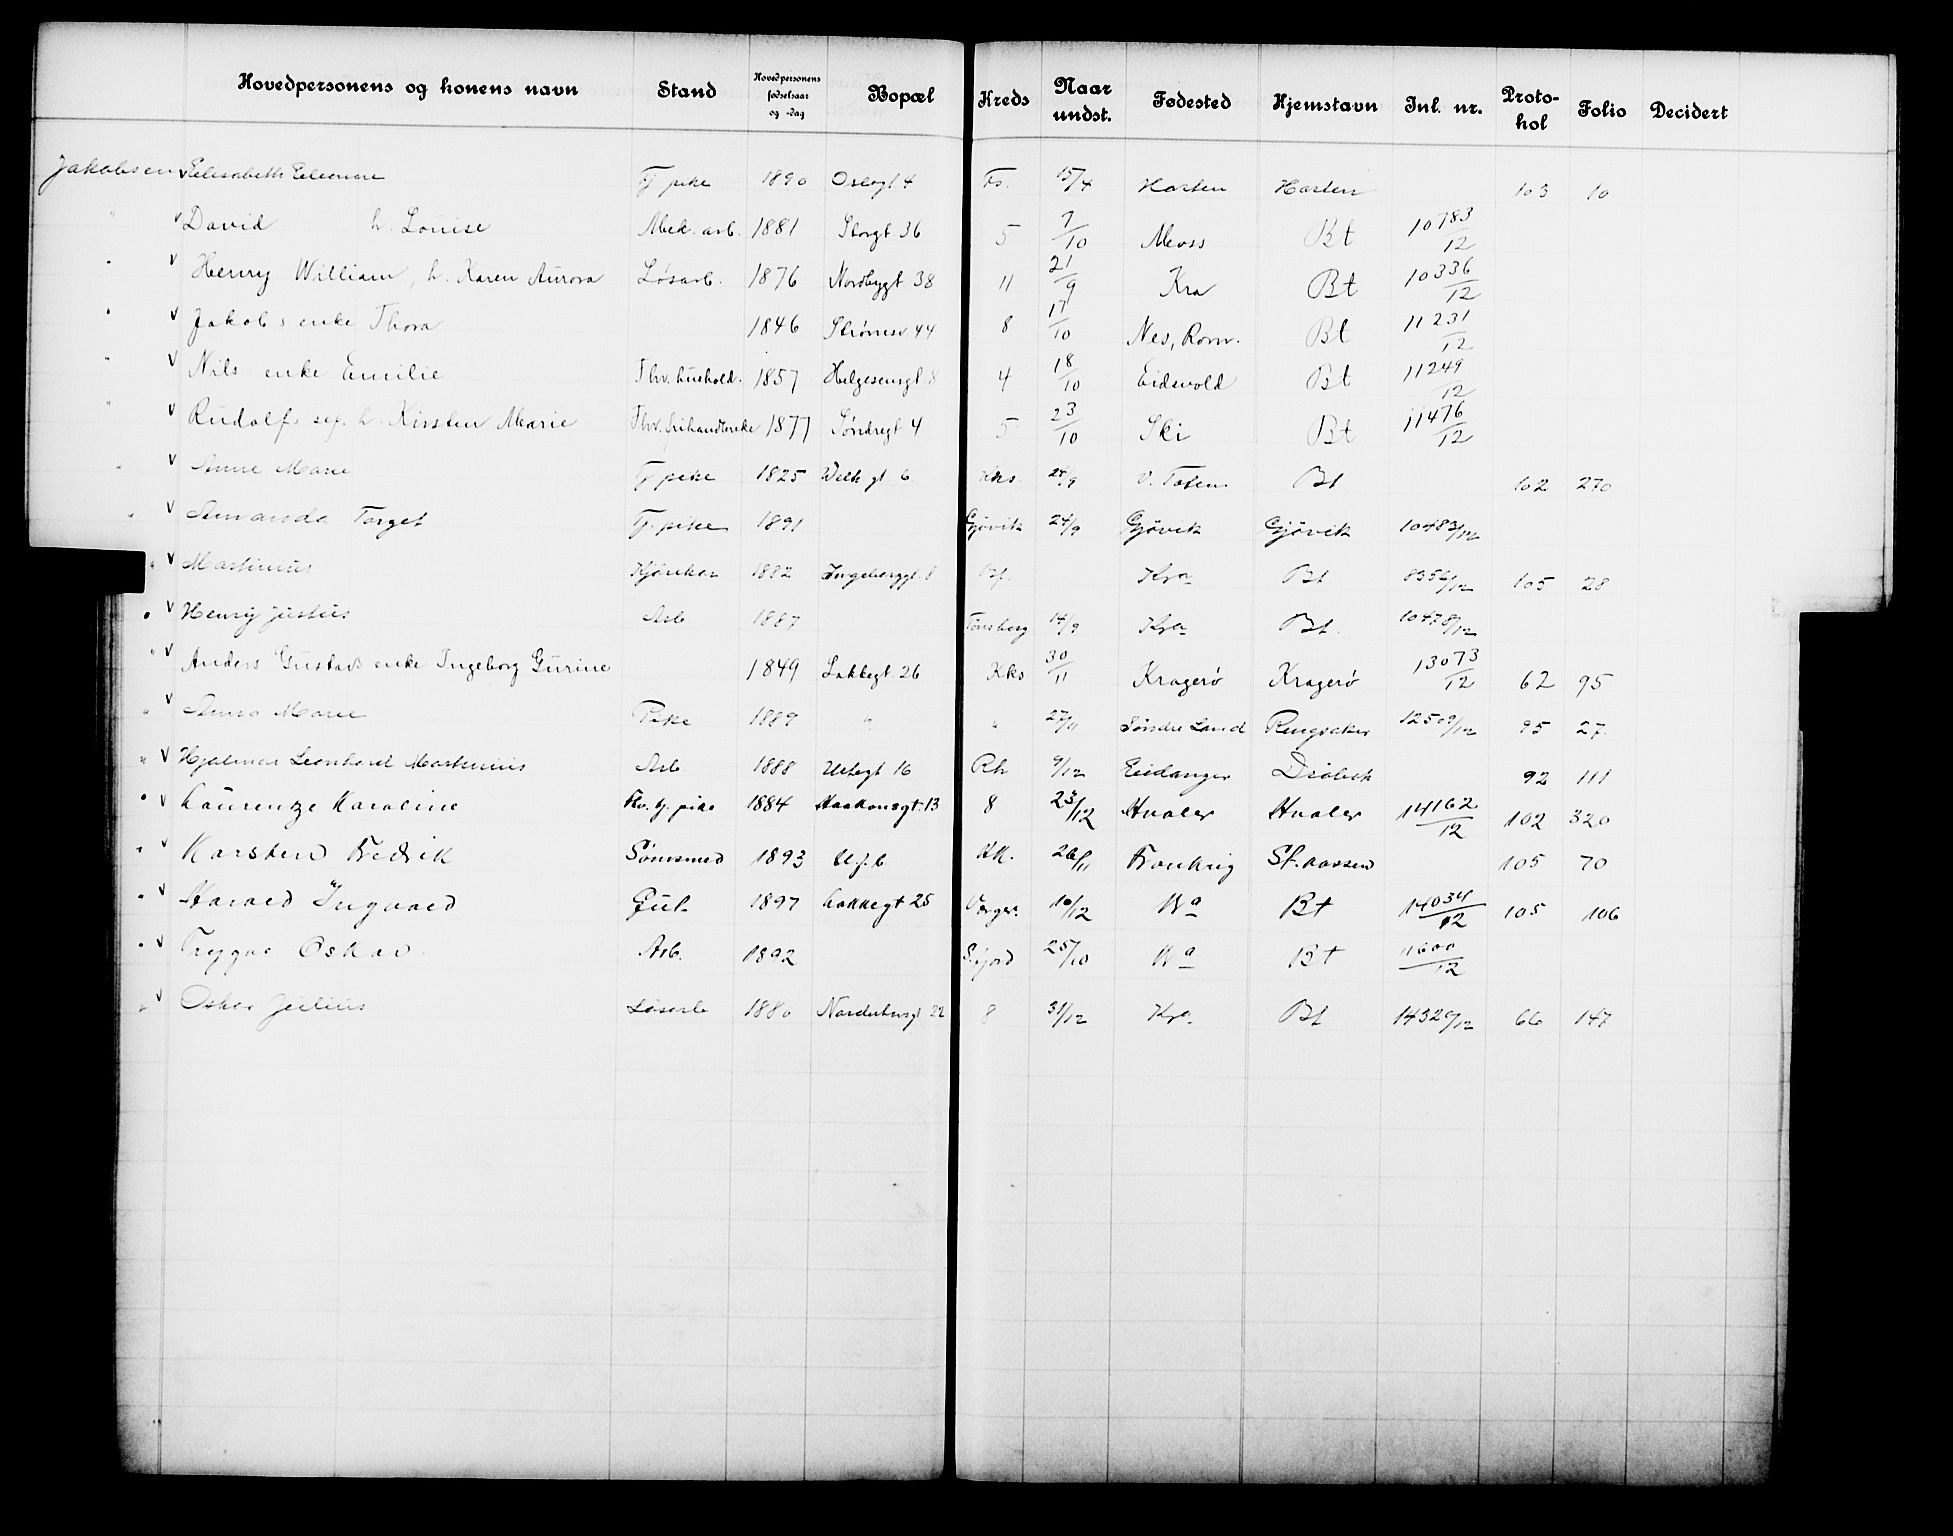 Hovedpersonens og konens navn Stand Hovedpersonens fødselsaar og -dag Bopæl Kreds Naar undst. Fødested Hjemstavn Inl. nr. Protokol Folio Decidert
Jakobsen v Elisabeth Eleonore Tj pike 1890 Oslogt 4 Fs. 15/4 Horten Horten 103 10
" v David h. Louise Mek. arb. 1881 Storgt 36 5 7/10 Moss Bt 10783/12
" v Henry William, h. Karen Aurora Løsarb. 1876 Nordbygt 38 11 21/9 Kra Bt 10336/12
" v Jakobs enke Thora 1846 Strømsv 44 8 17/10 Nes, Rom. Bt 11231/12
" v Nils enke Emilie Fhv. hushold. 1857 Helgesensgt 8 4 18/10 Eidsvold Bt 11249/12
" v Rudolfs sep. h. Kirsten Marie Fhv. frihandlerske 1877 Søndregt 4 5 23/10 Ski Bt 11476/12
" v Anne Marie Tj pike 1825 Welh gt 6 Kks /9 V. Toten Bt 102 270
" v Amanda Torget Tj. pike 1891 Gjøvik 24/9 Gjøvik Gjøvik 10483/12
" v Martinius Kjørekar 1882 Ingeborggt. 8 Kra Bt 8356/12 105 28
" v Henry Justus Arb 1887 Tønsberg 14/9 Kra Bt. 10478/12
" v Anders Gustavs enke Ingeborg Gurine 1849 Lakkegt 26 Kks 30/11 Kragerø Kragerø 13073/12 62 95
" v Anna Marie Pike 1889 " " 27/11 Søndre Land Ringsaker 12509/12 95 27
" v Hjalmar Leonhard Martinius Arb 1888 Urtegt 16 Rh 9/12 Eidanger Drøbak 92 111
" v Laurenze Karoline Fhv. tj. pike 1884 Haakonsgt. 13 8 23/12 Hvaler Hvaler 14162/12 102 320
" v Karsten Fredrik Sømsmed 1893 U.f.b KK. 26/11 Frankrig St. 105 70
" v Harald Ingvald Gut 1897 Lakkegt 25 Værger. 10/12 Kra Bt 14034/12 105 106
" v Trygve Oskar Arb. 1892 S.fjord 25/10 Kra Bt 11600/12
" v Oskar Julius Løsarb 1880 Norderhovgt 22 8 31/12 Kra Bt 14329/12 66 147